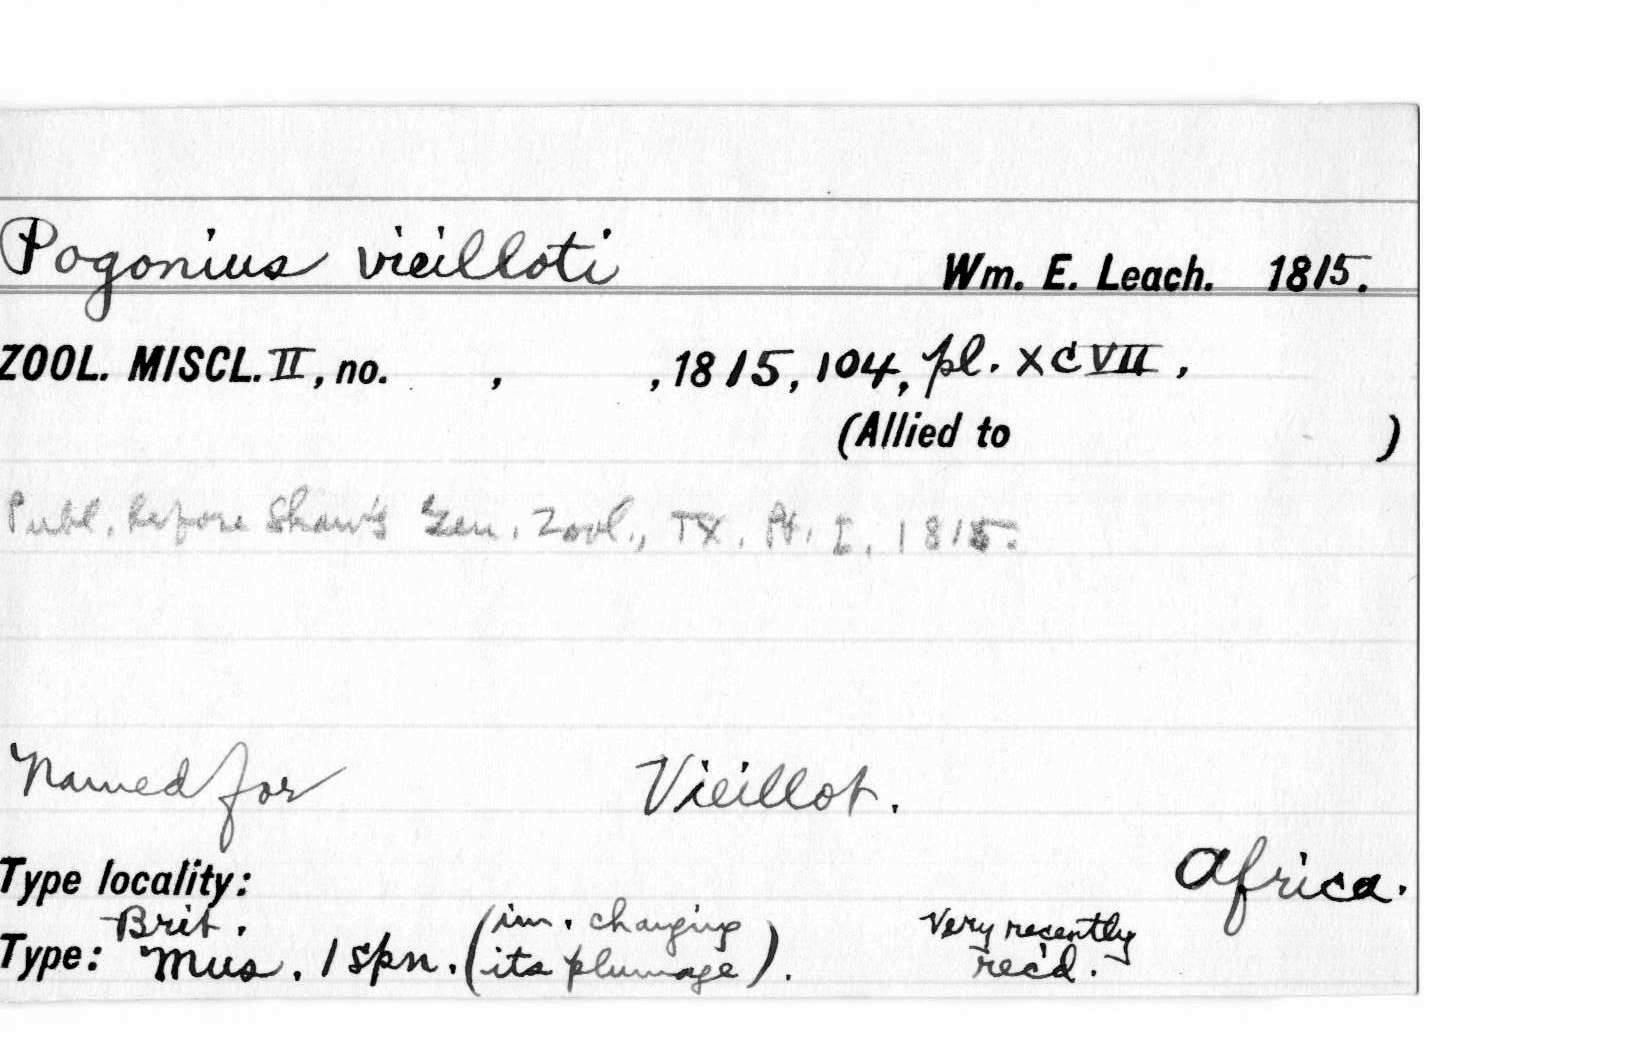 Pogonius vieilloti Wm. E. Leach. 1815.
ZOOL. MISCL. II, no. , , 1815, 104, pl. XCVII,
(Allied to )
Publ. before Shaw's Gen. Zool., IX. Pt. I, 1815.
Named for Vieillot.
Type locality: Africa.
Type: Brit. Mus. 1 spn. (im. changing its plumage). Very recently rec'd.